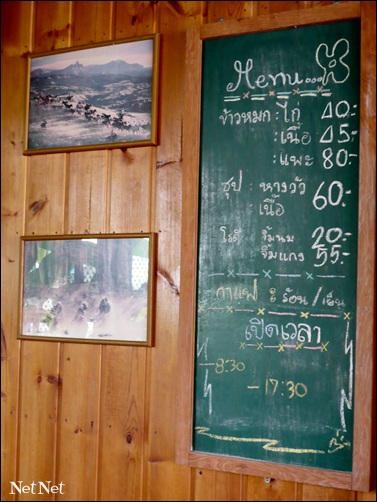 Menu...
ข้าวหมก : ไก่ 40.-
: เนื้อ 45.-
: แพะ 80.-
ซุป : หางวัว 60.-
: เนื้อ
โรตี จิ้มนม 20.-
จิ้มแกง 55.-
กาแฟ : ร้อน/เย็น
เปิดเวลา
8:30
- 17:30
NetNet